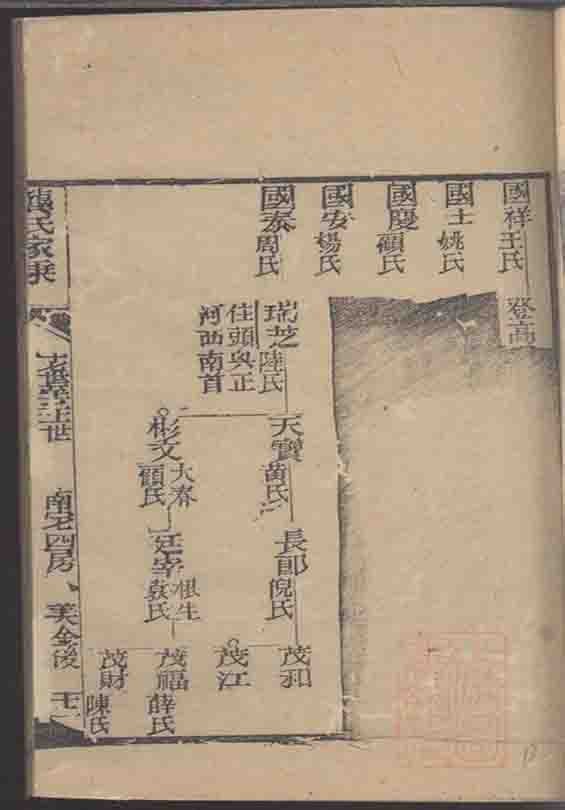 國祥王氏
登高
國士姚氏
國慶顧氏
國安楊氏
國泰周氏
瑞芝陸氏
住頭與正
河西南首
天寶黃氏
長郎倪氏
茂和
茂江
彬文大春
顧氏
廷宰根生
敖氏
茂福薛氏
茂財陳氏
氏家乘
世
南宅四房
美金後